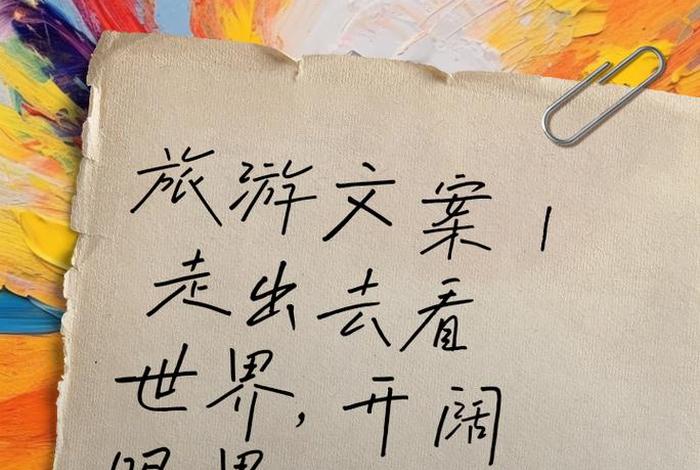 旅游文案1
走出去看
世界,开阔
眼界